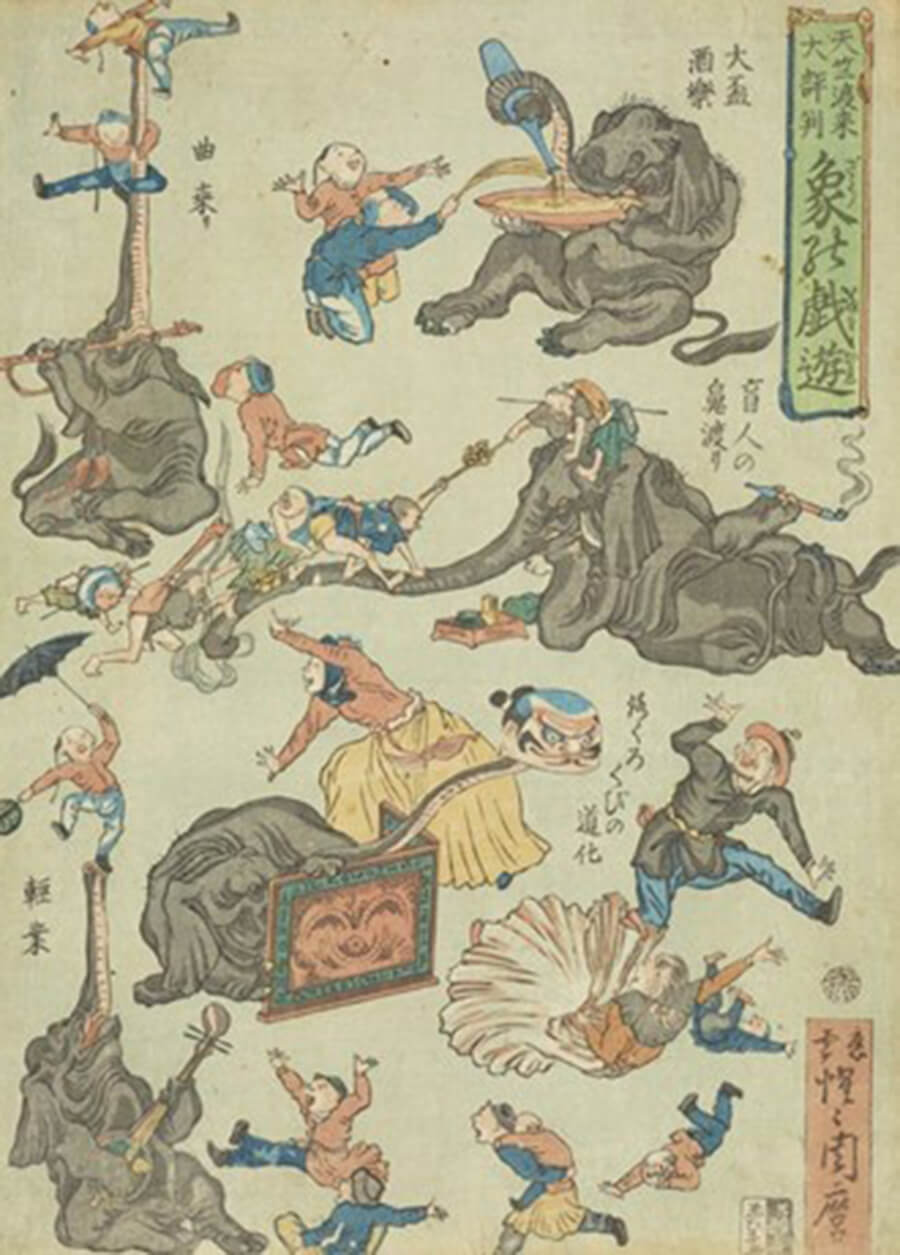 天竺渡来
大評判
象の戯遊
大盃
酒楽
曲乗り
盲人の
鬼渡り
ろくろ
くびの
道化
軽業
惺々周麿